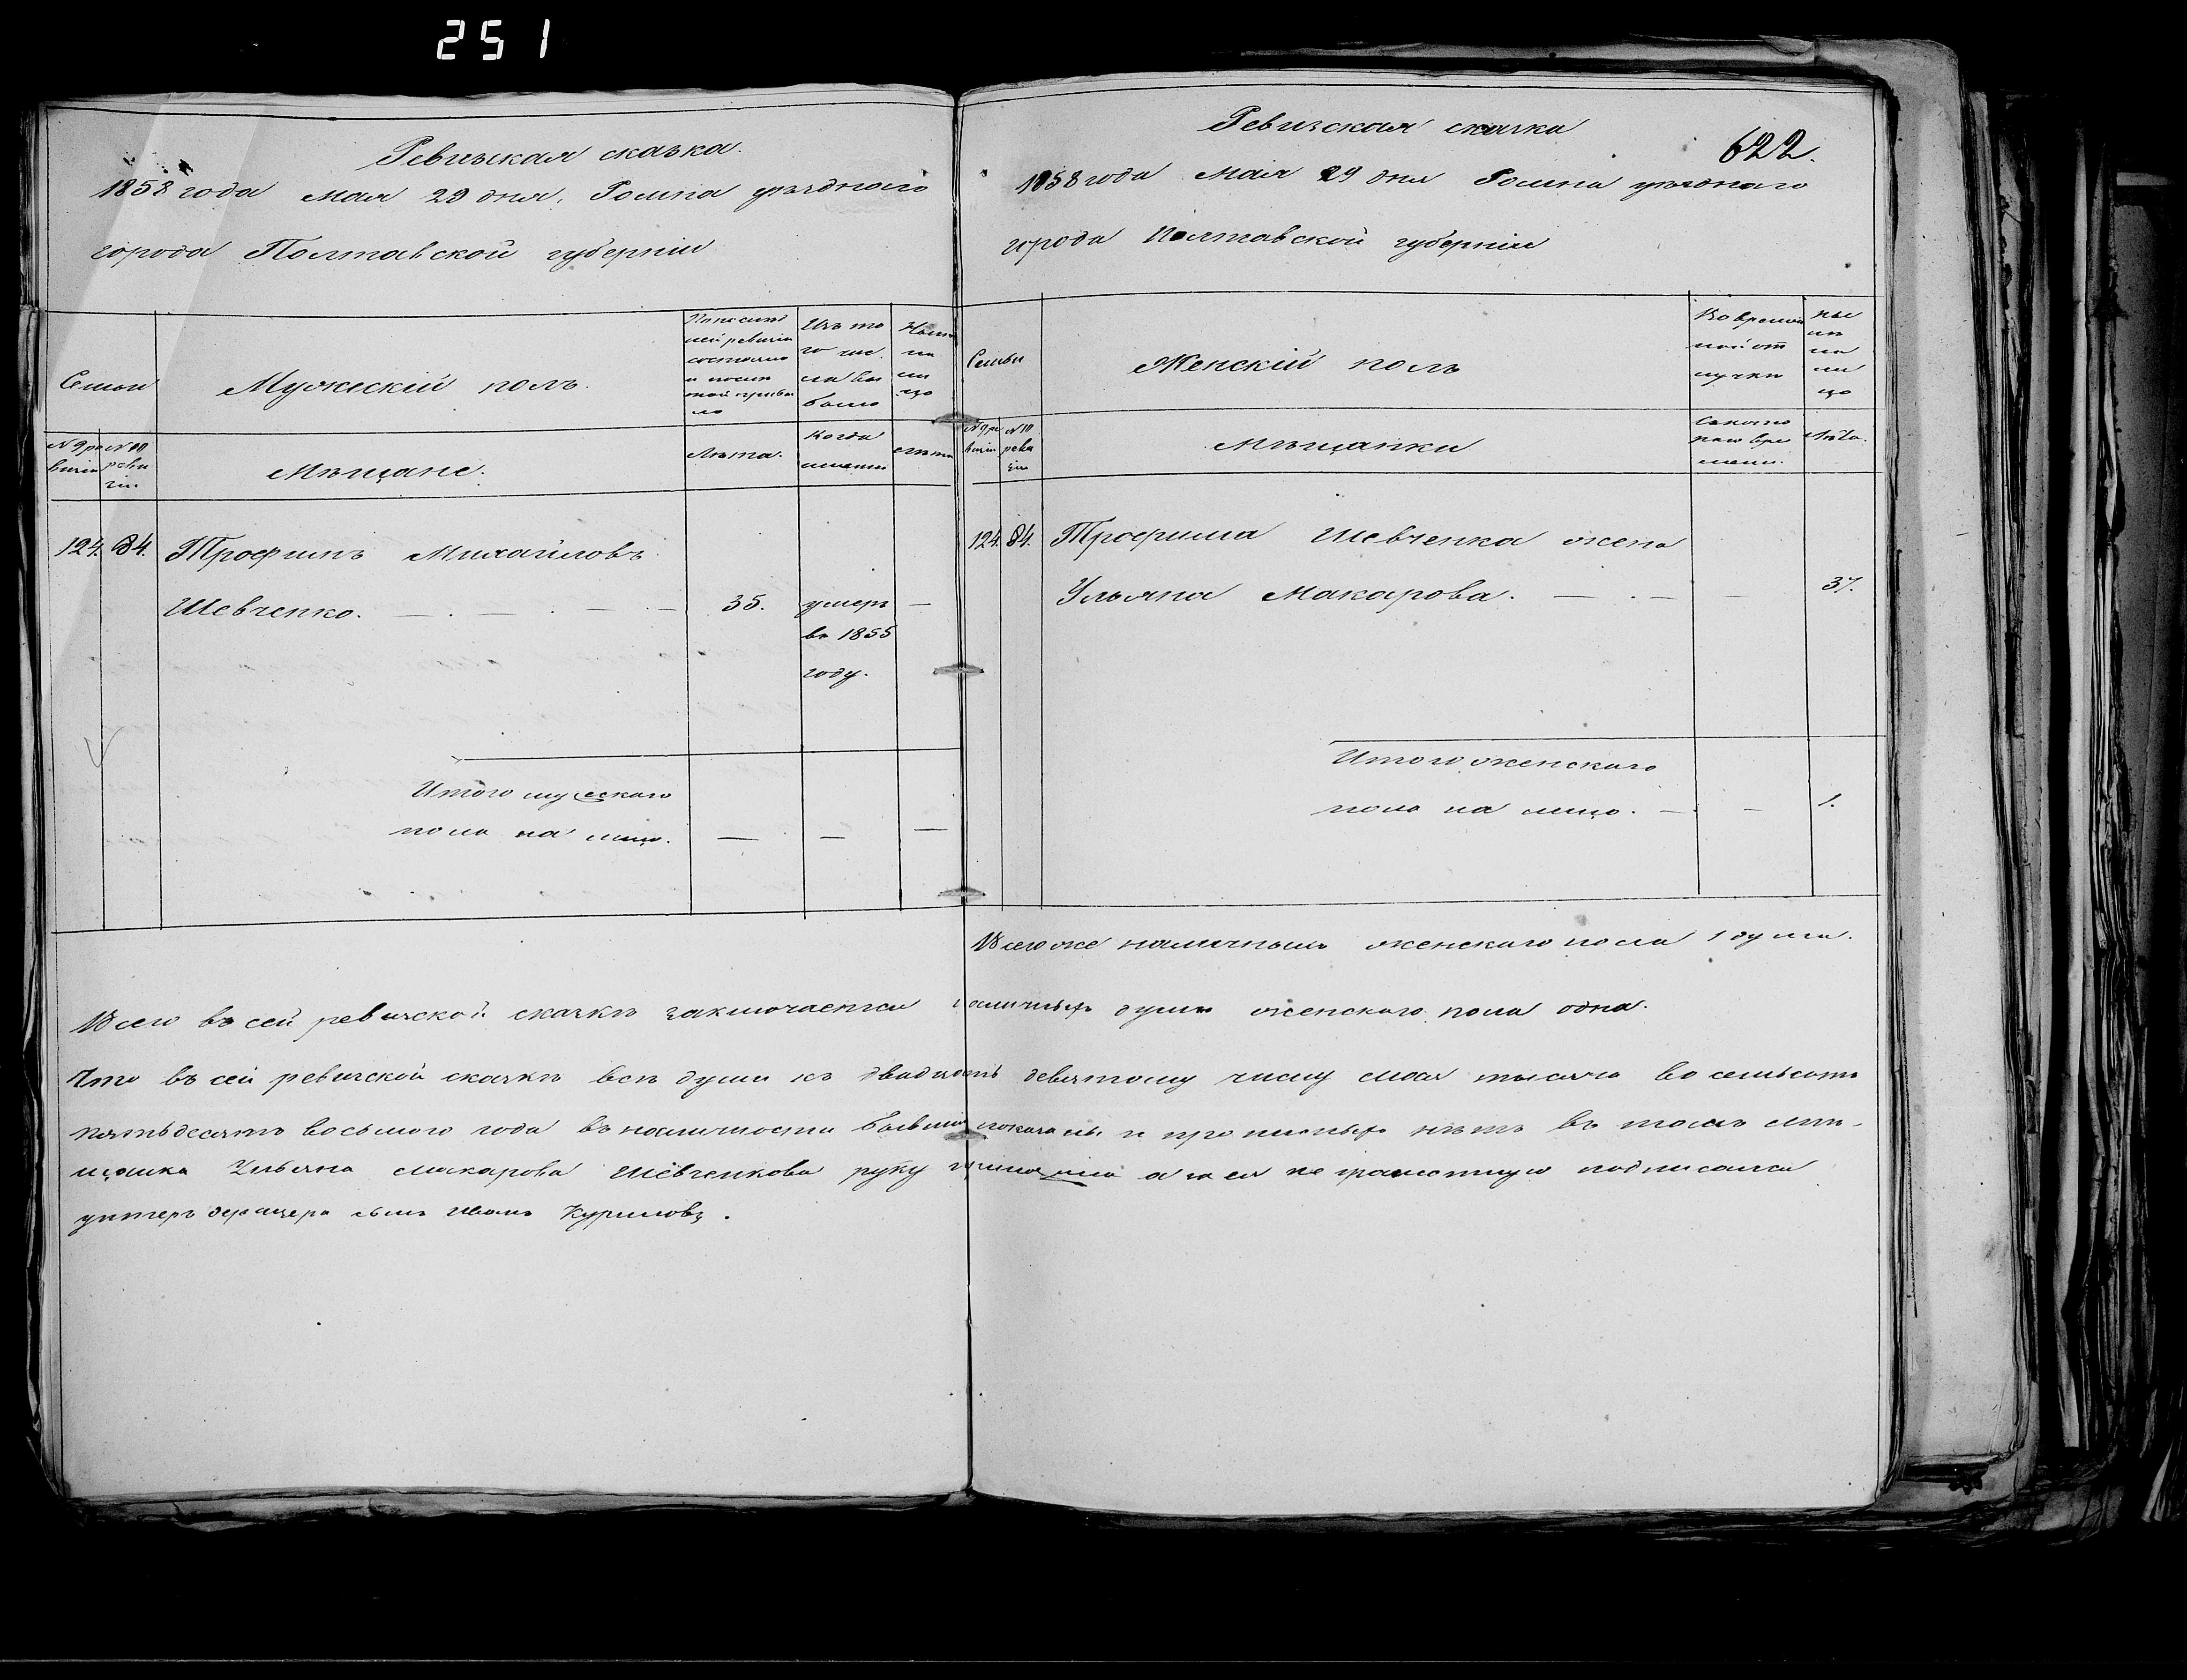 251
Ревизская сказка.
1858 года Мая 29 дня, Ромна уѣзднаго
города Полтавской губерніи
Семьи
Мужескій полъ.
По послѣд
ней ревизіи
состояло
и послѣ
той прибы
ло
Изъ то
го чис
ла вы
было
Нынѣ
на
ли
цо
№ 9 ре
визіи
№ 10
реви
зіи
Мѣщане.
Лѣта.
Когда
именно
Лѣта
124. 84. Трофимъ Михайловъ
Шевченко. — — — 35. умеръ —
въ 1855
году.
Итого мужескаго
пола на лицо. — — —
Ревизская сказка
622.
1858 года Мая 29 дня Ромна уѣзднаго
города Полтавской губерніи
Семьи
Женскій полъ
Во времен
ной от
лучки
Ны
нѣ
на
ли
цо
№ 9 ре
визіи
№ 10
реви
зіи
Мѣщанки
Съ кото
раго вре
мени.
Лѣта.
124. 84. Трофима Шевченка жена
Ульяна Макарова. — — — 37.
Итого женскаго
пола на лицо. — — 1.
Всего же наличныхъ женскаго пола 1 душа.
Всего въ сей ревизской сказкѣ заключается наличныхъ душъ женскаго пола одна.
Что въ сей ревизской сказкѣ всѣ души къ двадцать девятому числу мая тысяча восемьсотъ
пятьдесятъ восьмого года въ наличности бывшія показаны и прописныхъ нѣтъ въ томъ мѣ-
щанка Ульяна макарова Шевченкова руку а за ея не грамотную подписался
унтеръ сынъ Иванъ Куриловъ.